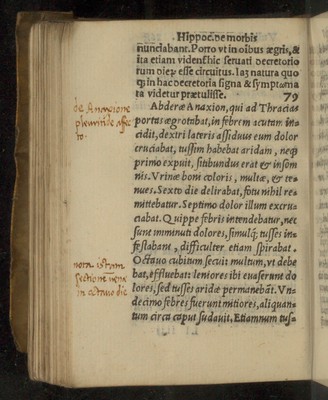 Hippoc. de morbis
nūnciabant. Porro vt in oībus ægris, &
ita etiam videnť hic seruati decretorio
rum dierꝫ esse circuitus. Iaꝫ natura quo
qꝫ in hac decretoria signa & symptoma
ta videtur prætulisse. 79
Abderæ Anaxion, qui ad Thracias
portas ægrotabat, in febrem acutam in-
cidit, dextri lateris assiduus eum dolor
cruciabat, tussim habebat aridam, neqꝫ
primo expuit, sitibundus erat & insom
nis. Vrinæ boni coloris, multæ, & te-
nues. Sexto die delirabat, fotu nihil re-
mittebatur. Septimo dolor illum excru-
ciabat. Quippe febris intendebatur, nec
sunt imminuti dolores, simulqꝫ tusses in-
festabant, difficulter etiam spirabat.
Octauo cubitum secui: multum, vt debe
bat, effluebat: leniores ibi euaserunt do
lores, sed tusses aridæ permanebāt. Vn-
decimo febres fuerunt mitiores, aliquan-
tum circa caput sudauit. Etiamnum tus-
de Anaxione
pleuritide
to.
nota
sectione
in octauo die